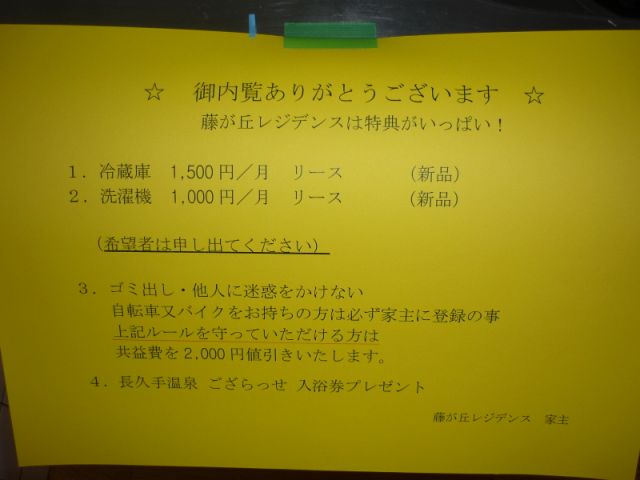 ☆ 御内覧ありがとうございます ☆
藤が丘レジデンスは特典がいっぱい！
１．冷蔵庫 1,500円／月 リース （新品）
２．洗濯機 1,000円／月 リース （新品）
（希望者は申し出てください）
３．ゴミ出し・他人に迷惑をかけない
自転車又バイクをお持ちの方は必ず家主に登録の事
上記ルールを守っていただける方は
共益費を2,000円値引きいたします。
４．長久手温泉 ござらっせ 入浴券プレゼント
藤が丘レジデンス 家主